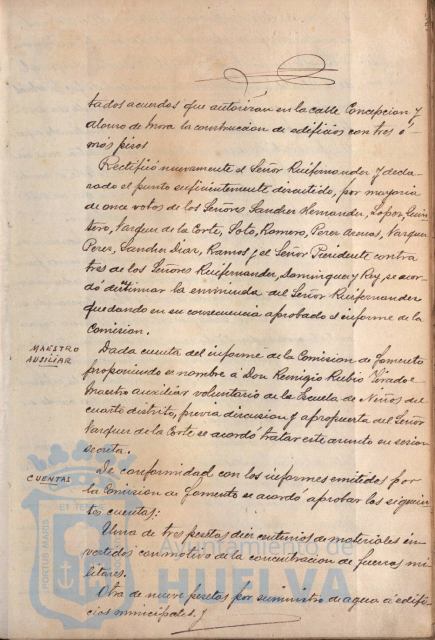 tados acuerdos que autorizan en la calle Concepcion y
Alonso de Mora la construccion de edificios con tres ó
más pisos
Rectificó nuevamente el Señor Ruifernandez y decla-
rado el punto suficientemente discutido, por mayoria
de once votos de los Señores Sanchez Hernandez, López, Quin-
tero, Vazquez de la Corte, Soto, Romero, Perez Acenas, Vazquez
Perez, Sanchez Diaz, Ramos y el Señor Presidente contra
tres de los Señores Ruifernandez, Dominguez y Rey, se acor-
dó desestimar la enmienda del Señor Ruifernandez
quedando en su consecuencia aprobado el informe de la
Comision.
MAESTRO
AUSILIAR
Dada cuenta del informe de la Comision de Fomento
proponiendo se nombre á Don Remigio Rubio
Maestro auxiliar voluntario de la Escuela de Niños del
cuarto distrito, previa discusion y á propuesta del Señor
Vazquez de la Corte se acordó tratar este asunto en sesion
secreta.
CUENTAS
De conformidad con los informes emitidos por
la Comision de Fomento se acordó aprobar las siguien-
tes cuentas:
Una de tres pesetas diez centimos de materiales in-
vertidos con motivo de la concentracion de fuerzas mi-
litares.
Otra de nueve pesetas por suministro de agua á edifi-
cios municipales.
PORTUS MARIS
ET TERRAE
Ayuntamiento de
HUELVA